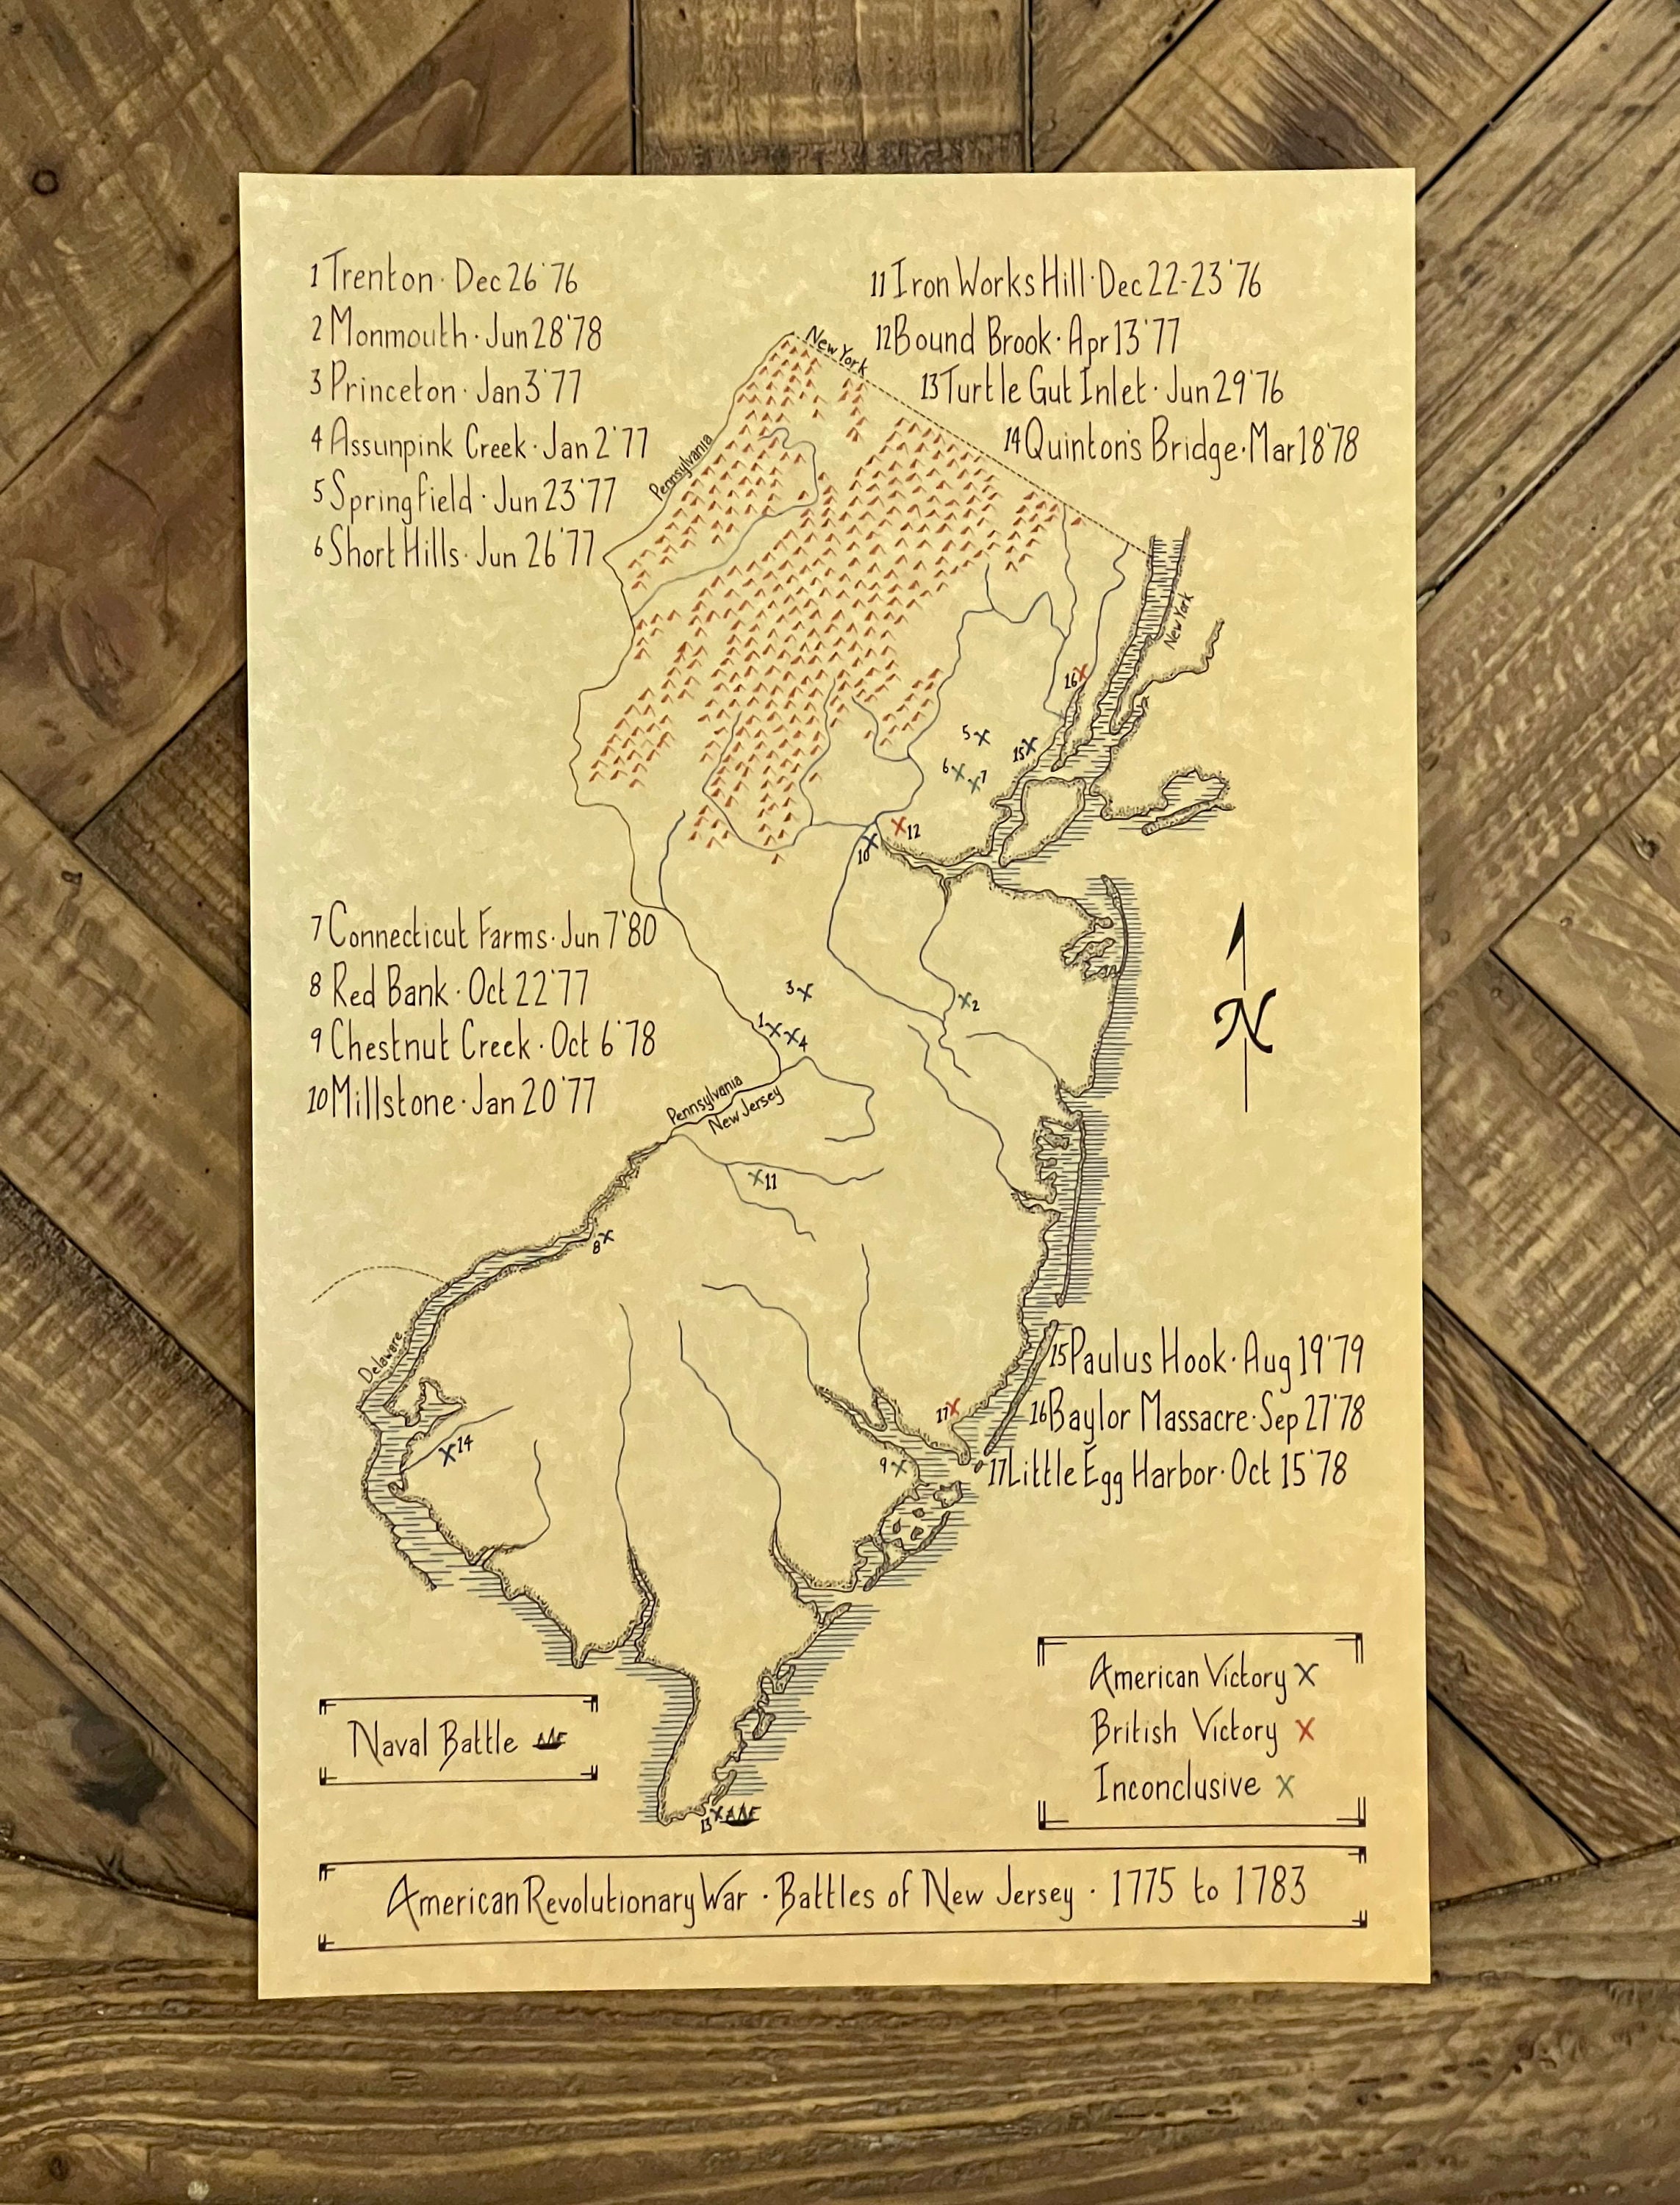 1 Trenton · Dec 26 '76
2 Monmouth · Jun 28 '78
3 Princeton · Jan 3 '77
4 Assunpink Creek · Jan 2 '77
5 Springfield · Jun 23 '77
6 Short Hills · Jun 26 '77
11 Iron Works Hill · Dec 22-23 '76
12 Bound Brook · Apr 13 '77
13 Turtle Gut Inlet · Jun 29 '76
14 Quinton's Bridge · Mar 18 '78
New York
Pennsylvania
New York
16
5
15
6
7
12
10
7 Connecticut Farms · Jun 7 '80
8 Red Bank · Oct 22 '77
9 Chestnut Creek · Oct 6 '78
10 Millstone · Jan 20 '77
3
2
1
4
N
Pennsylvania
New Jersey
11
8
Delaware
15 Paulus Hook · Aug 19 '79
16 Baylor Massacre · Sep 27 '78
17 Little Egg Harbor · Oct 15 '78
17
14
9
13
Naval Battle
American Victory X
British Victory X
Inconclusive X
American Revolutionary War · Battles of New Jersey · 1775 to 1783